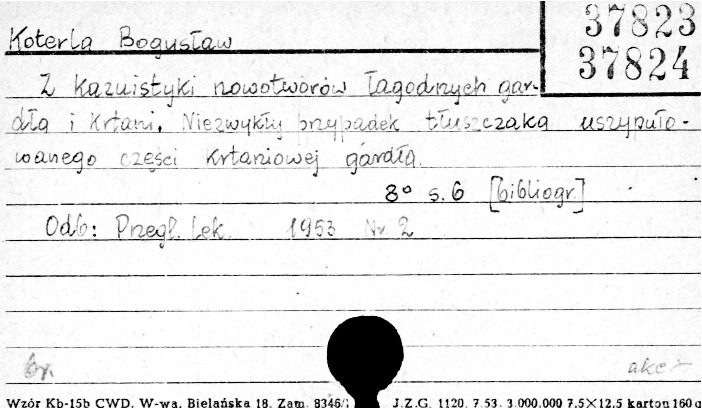 37823
37824
Koterla Bogusław
Z kazuistyki nowotworów łagodnych gar-
dła i krtani. Niezwykły przypadek tłuszczaka uszypuło-
wanego części krtaniowej gardła.
8° s. 6 [bibliogr.]
Odb: Przegl. Lek. 1953 Nr 2
br.
akc
Wzór Kb-15b CWD, W-wa, Bielańska 18. Zam. 8346/
J.Z.G. 1120. 7.53. 3.000.000 7,5×12,5 karton 160 g